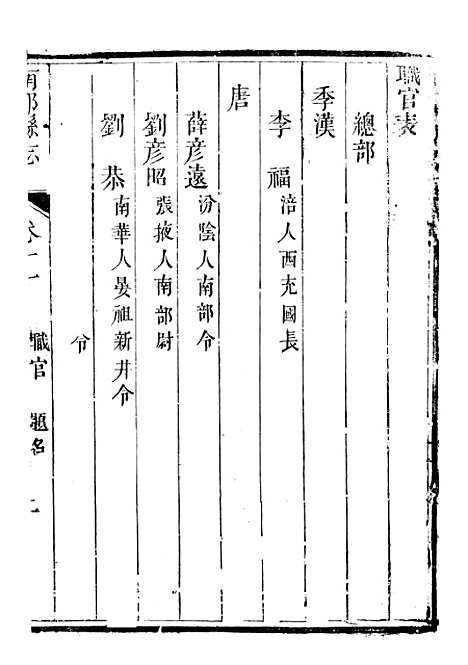 職官表
總部
季漢
李福 涪人西充國長
唐
薛彦遠 汾陰人南部令
劉彦昭 張掖人南部尉
劉恭 南華人晏祖新井令
令
南部縣志 卷十一 職官 題名